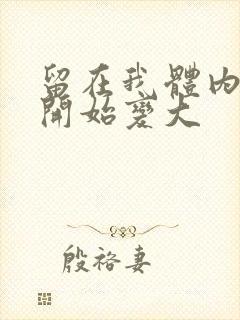 留在我體內
開始變大
殷裕妻